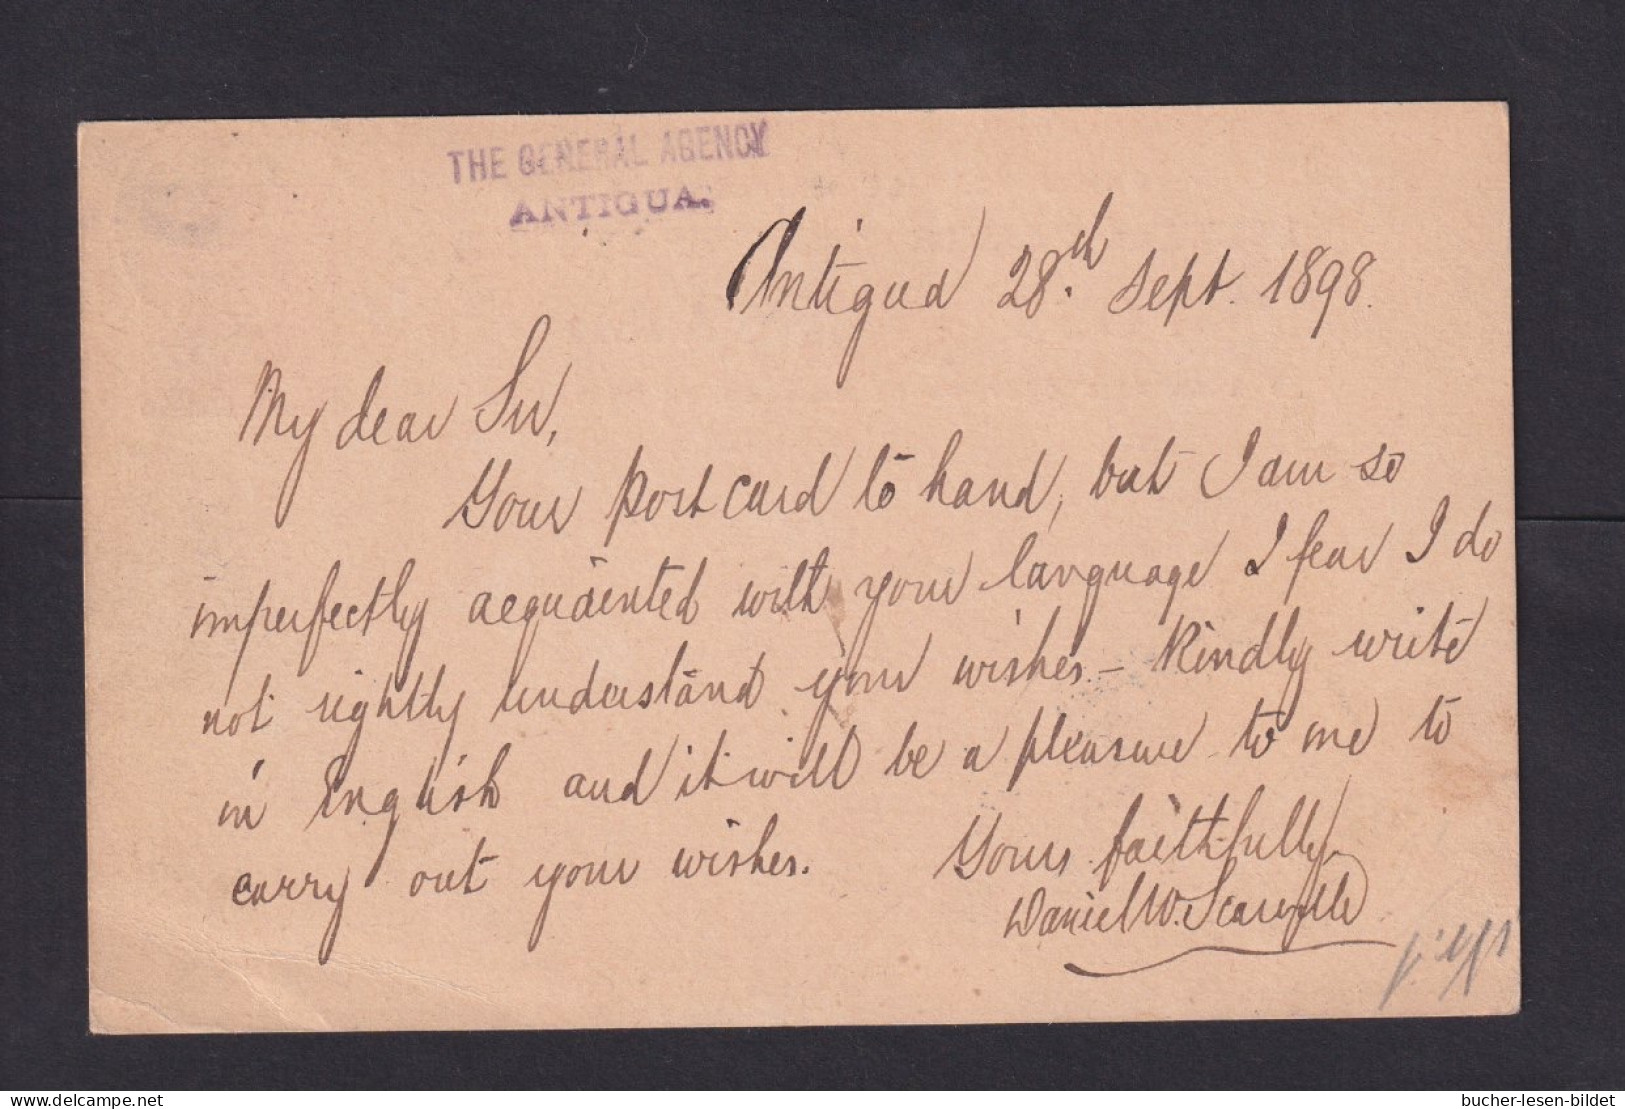 THE GENERAL AGENCY
ANTIGUA.
Antigua 28th Sept. 1898.
My dear Sir,
Your post card to hand, but I am so
imperfectly acquainted with your language I fear I do
not rightly understand your wishes – Kindly write
in English and it will be a pleasure to me to
carry out your wishes. Yours faithfully
Daniel W.
bucher-lesen-bildet